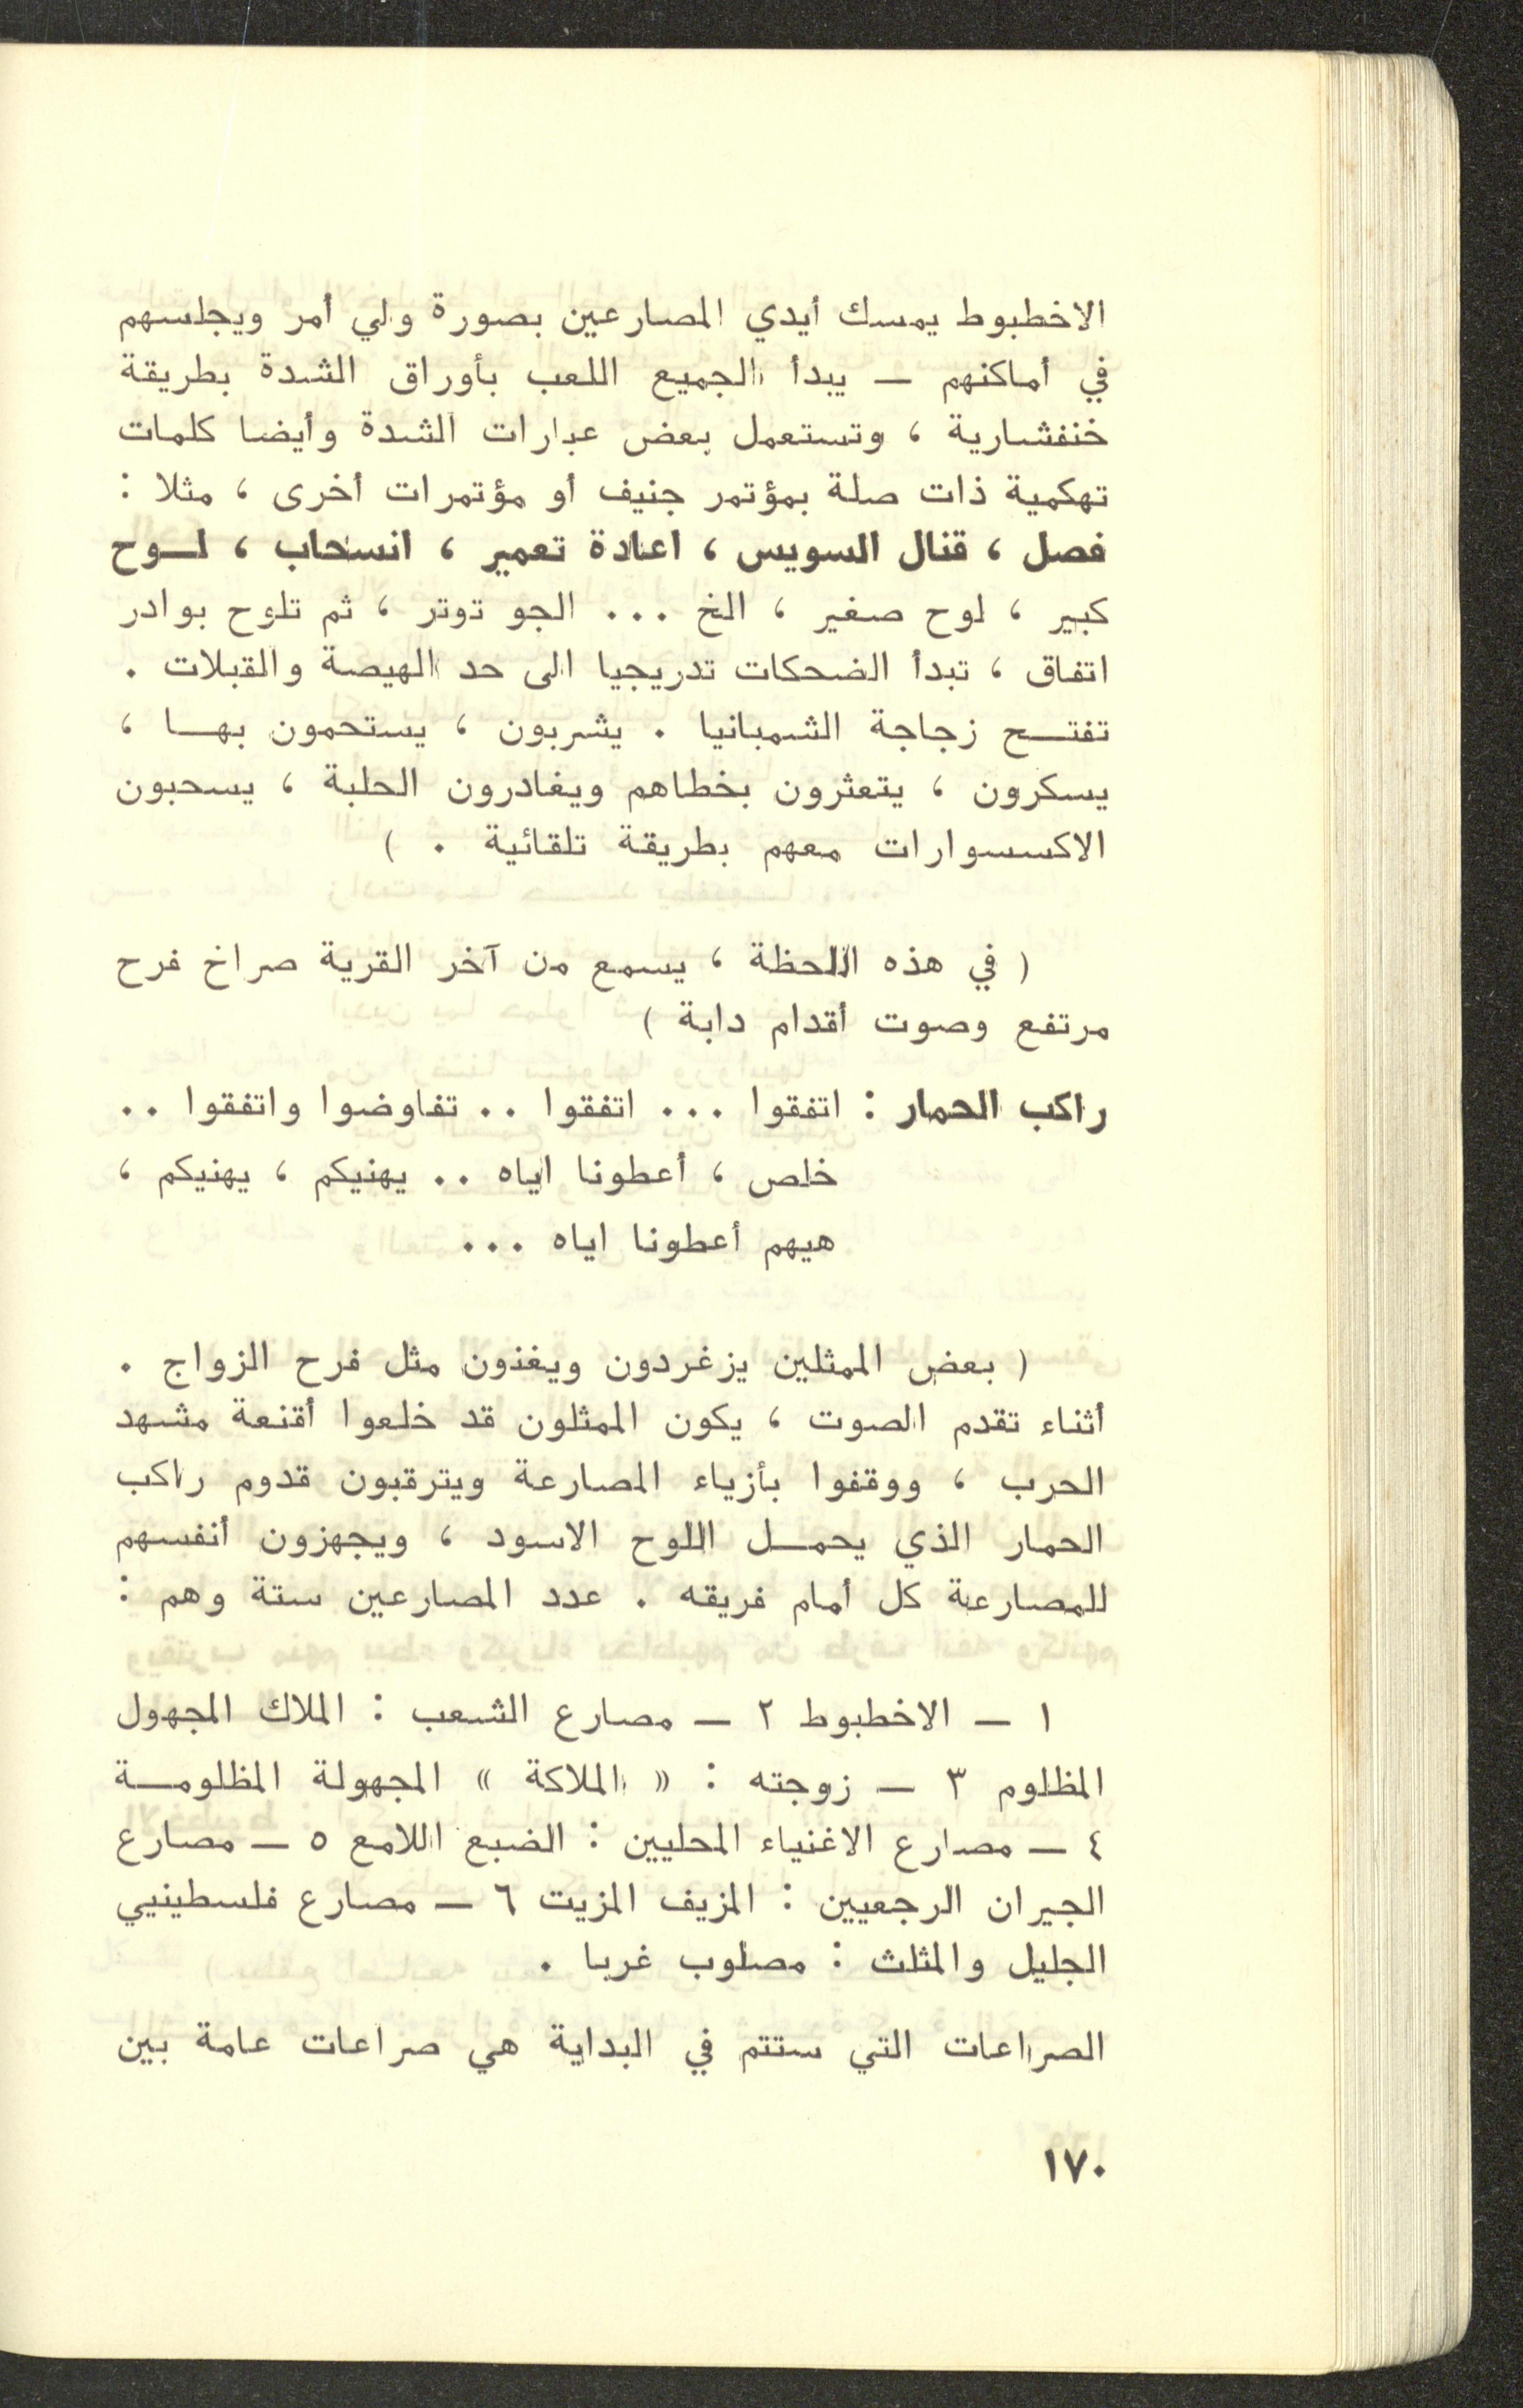 الاخطبوط يمسك أيدي المصارعين بصورة ولي أمر ويجلسهم
في أماكنهم — يبدأ الجميع اللعب بأوراق الشدة بطريقة
خنفشارية ، وتستعمل بعض عبارات الشدة وأيضا كلمات
تهكمية ذات صلة بمؤتمر جنيف أو مؤتمرات أخرى ، مثلا :
فصل ، قنال السويس ، اعادة تعمير ، انسحاب ، لــوح
كبير ، لوح صغير ، الخ ... الجو توتر ، ثم تلوح بوادر
اتفاق ، تبدأ الضحكات تدريجيا الى حد الهيصة والقبلات .
تفتــح زجاجة الشمبانيا . يشربون ، يستحمون بهــا ،
يسكرون ، يتعثرون بخطاهم ويغادرون الحلبة ، يسحبون
الاكسسوارات معهم بطريقة تلقائية . )
( في هذه اللحظة ، يسمع من آخر القرية صراخ فرح
مرتفع وصوت أقدام دابة )
راكب الحمار : اتفقوا ... اتفقوا .. تفاوضوا واتفقوا ..
خلص ، أعطونا اياه .. يهنيكم ، يهنيكم ،
هيهم أعطونا اياه ...
( بعض الممثلين يزغردون ويغنون مثل فرح الزواج .
أثناء تقدم الصوت ، يكون الممثلون قد خلعوا أقنعة مشهد
الحرب ، ووقفوا بأزياء المصارعة ويترقبون قدوم راكب
الحمار الذي يحمــل اللوح الاسود ، ويجهزون أنفسهم
للمصارعة كل أمام فريقه . عدد المصارعين ستة وهم :
١ — الاخطبوط ٢ — مصارع الشعب : الملاك المجهول
المظلوم ٣ — زوجته : « الملاكة » المجهولة المظلومــة
٤ — مصارع الاغنياء المحليين : الضبع اللامع ٥ — مصارع
الجيران الرجعيين : المزيف المزيت ٦ — مصارع فلسطينيي
الجليل والمثلث : مصلوب غربا .
الصراعات التي ستتم في البداية هي صراعات عامة بين
١٧٠